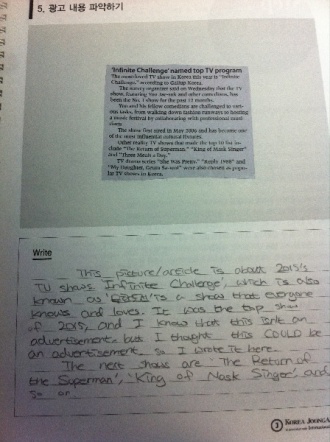 5. 광고 내용 파악하기
'Infinite Challenge' named top TV program
The most-loved TV show in Korea this year is "Infinite
Challenge," according to Gallup Korea.
The survey organizer said on Wednesday that the
show, featuring Yoo Jae-suk and other comedians, has
been the No. 1 show for the past 12 months.
Yoo and his fellow comedians are challenged to vari-
ous tasks, from walking down fashion runways to hosting
a music festival by collaborating with professional musi-
cians.
The show first aired in May 2006 and has become one
of the most influential cultural fixtures.
Other reality TV shows that made the top 10 list in-
clude "The Return of Superman," "King of Mask Singer"
and "Three Meals a Day."
TV drama series "She Was Pretty," "Reply 1988" and
"My Daughter, Geum Sa-wol" were also chosen as popu-
lar TV shows in Korea.
Write
This picture/article is about 2015's
TV shows Infinite Challenge, which is also
known as is a show that everyone
knows and loves. It was the top show
of 2015, and I know that this isn't an
advertisement, but I thought this COULD be
an advertisement, so I wrote it here.
The next shows are 'The Return of
the Superman', 'King of Mask Singer', and
so on.
3 KOREA JOONGA